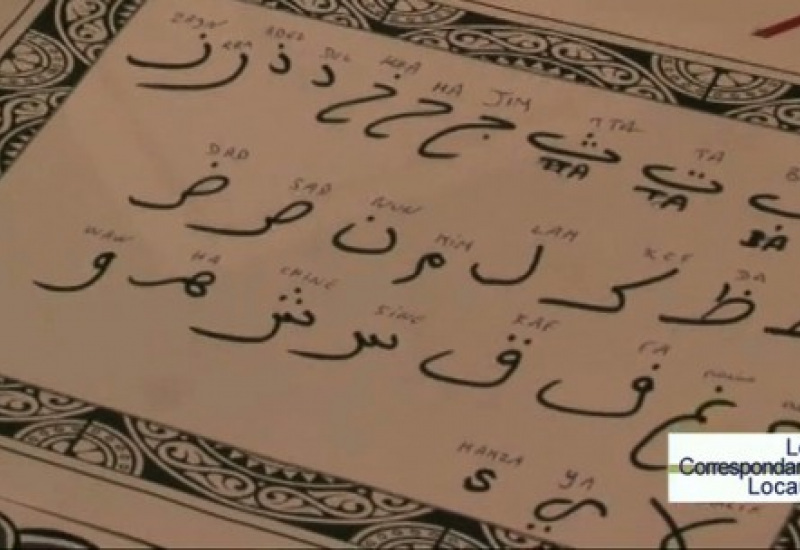 ZAYN RAA DEL KHA HA JIM TTA TA
ب ت ث ج ح خ د ذ ر ز
TTA TA BA
DAD SAD NUN MIM LAM KEF DA
ظ ك ل م ن ص ض
WAW HA CHINE SINE KAF FA
غ ف ق س ش ه و
HAMZA YA
لا ي ء
Correspondan
Loca